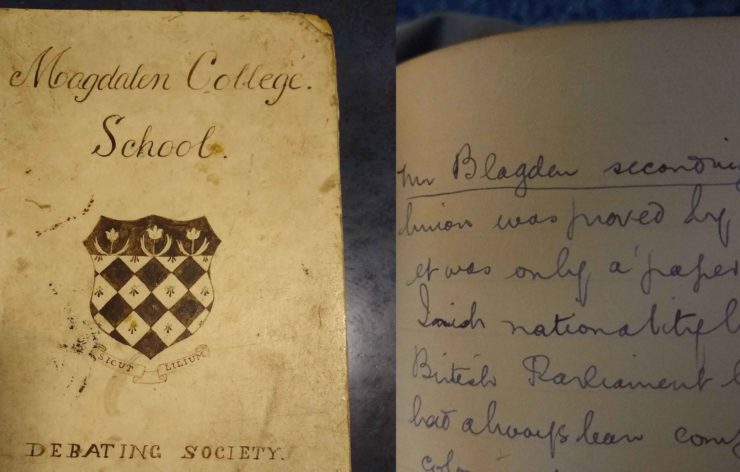 Magdalen College.
School.
SICUT LILIUM
DEBATING SOCIETY.
Mr Blagden seconding
Union was proved by
it was only a 'paper
Irish nationality
British Parliament
had always been